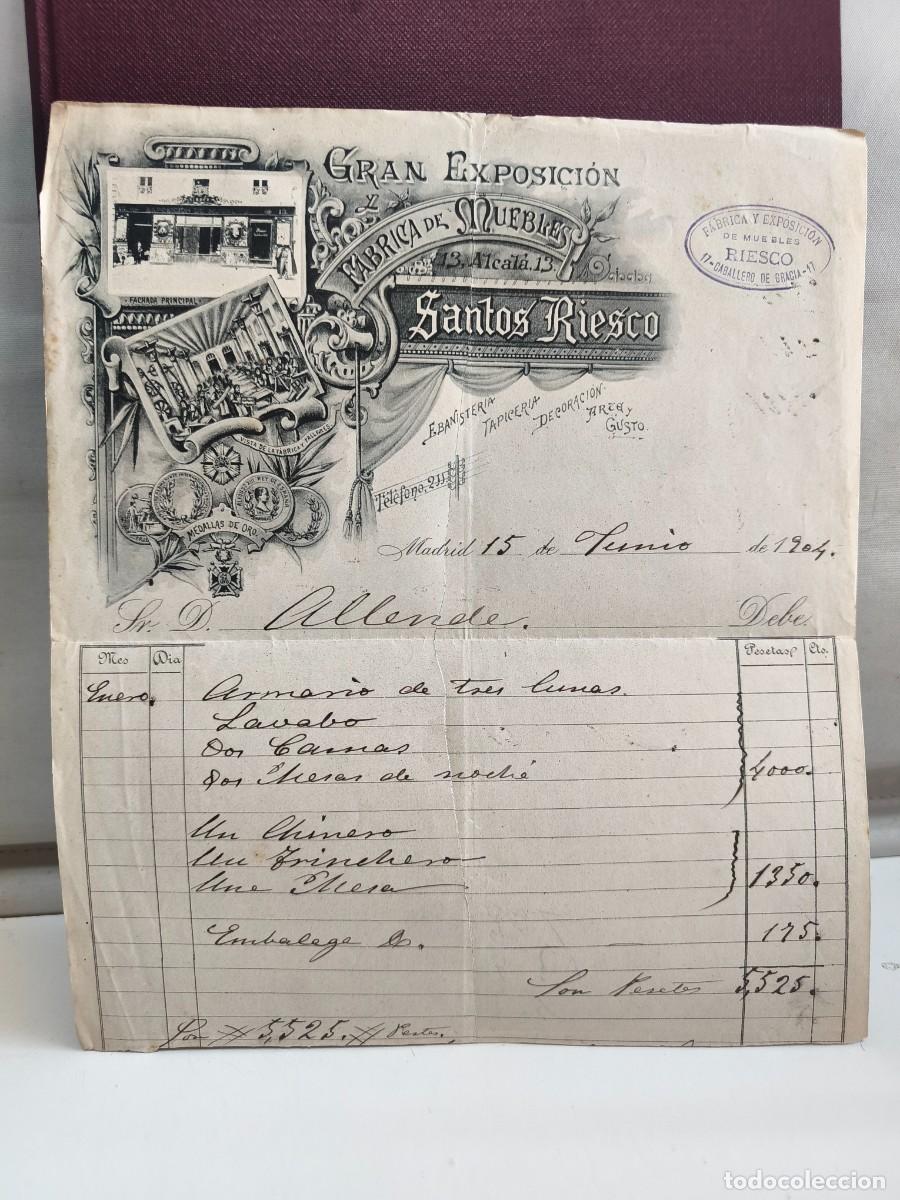 GRAN EXPOSICIÓN
FÁBRICA DE MUEBLES
13, Alcalá, 13
Santos Riesco
FÁBRICA Y EXPOSICIÓN
DE MUEBLES
RIESCO
17-CABALLERO DE GRACIA-17
FACHADA PRINCIPAL
VISTA DE LA FÁBRICA Y TALLERES.
MEDALLAS DE ORO.
EBANISTERIA
TAPICERIA
DECORACIÓN.
ARTE Y
GUSTO.
Teléfono, 211
Madrid 15 de Junio de 1904.
Sr. D. Allende. Debe
Mes Dia Pesetas Cts.
Enero. Armario de tres lunas.
Lavabo
Dos Camas
Dos Mesas de noche 4000.
Un Chinero
Un Trinchero
Una Mesa 1350.
Embalage 175.
Son Pesetas 5,525.
Son # 5,525. # Pestas.
todocoleccion